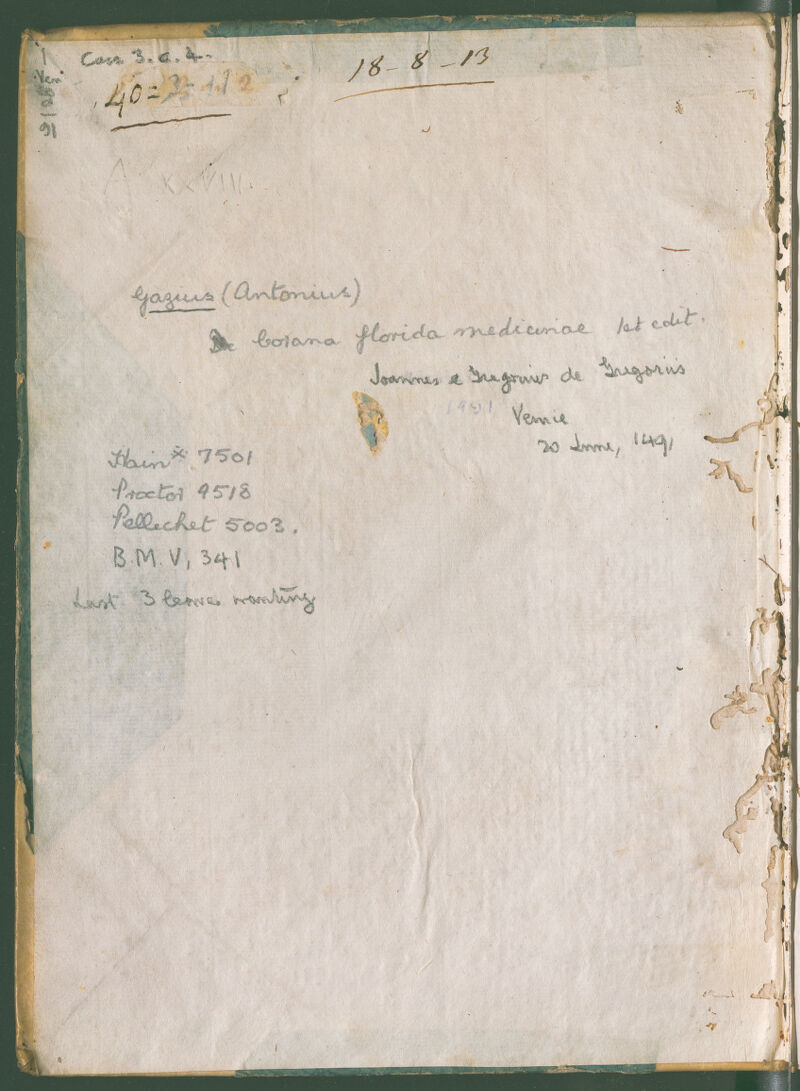 Case 3. c. 4.
18-8-13
1
Ven
20
91
40=
A XXVIII.
Gazius (Antonius)
De Corona florida medicinae 1st edit.
Joannes & Gregorius de Gregoriis
1491
Venice
20 June, 1491
Hain* 7501
Proctor 4518
Pellechet 5003.
B.M. V, 341
Last 3 leaves wanting